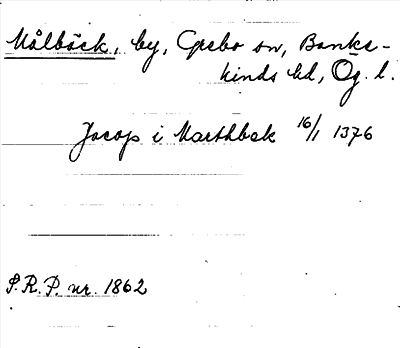 Målbäck, by, Grebo sn, Banke-
kinds hd, Ög. l.
Jacop i Marthbek 16/1 1376
S.R.P. nr. 1862